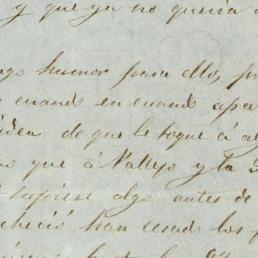 y que ya no queria
humor para ello, p
cuando en cuando apa
de que le toque á al
que á Vallejo y la
supiese algo antes de
han cesado los